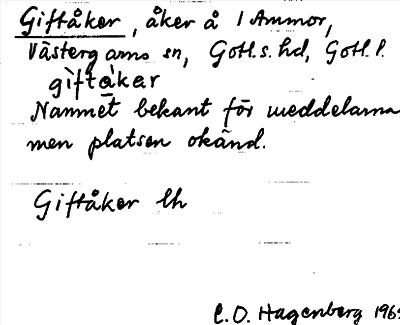 Giftåker, åker å 1 Ammor,
Västergarns sn, Gotl.s. hd, Gotl. l.
giftákar
Namnet bekant för meddelarna
men platsen okänd.
Giftåker lh
C. O. Hagenberg